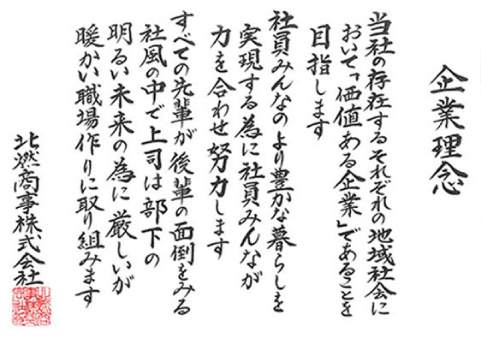 企業理念
当社の存在するそれぞれの地域社会に
おいて「価値ある企業」であることを
目指します
社員みんなのより豊かな暮らしを
実現する為に社員みんなが
力を合わせ努力します
すべての先輩が後輩の面倒をみる
社風の中で上司は部下の
明るい未来の為に厳しいが
暖かい職場作りに取り組みます
北燃商事株式会社